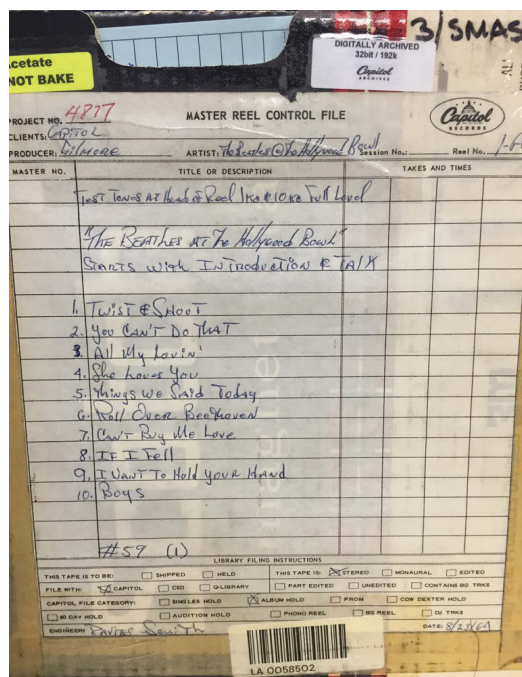 3/SMAS
Acetate
NOT BAKE
DIGITALLY ARCHIVED
32bit / 192k
Capitol
ARCHIVES
PROJECT NO. 4877
MASTER REEL CONTROL FILE
Capitol
RECORDS
CLIENTS: CAPITOL
PRODUCER: Gilmore
ARTIST: The Beatles @ The Hollywood Bowl
Session No.:
Reel No.
MASTER NO. TITLE OR DESCRIPTION TAKES AND TIMES
Test Tones At Head of Reel 1kc & 10kc Full Level
"The Beatles At The Hollywood Bowl"
Starts with Introduction & Talk
1. Twist & Shout
2. You Can't Do That
3. All My Lovin'
4. She Loves You
5. Things We Said Today
6. Roll Over Beethoven
7. Can't Buy Me Love
8. If I Fell
9. I Want To Hold Your Hand
10. Boys
#59 (1)
LIBRARY FILING INSTRUCTIONS
THIS TAPE IS TO BE: SHIPPED HELD THIS TAPE IS: STEREO MONAURAL EDITED
FILE WITH: CAPITOL CSD O-LIBRARY PART EDITED UNEDITED CONTAINS BG TRKS
CAPITOL FILE CATEGORY: SINGLES HOLD ALBUM HOLD PROM COW DEXTER HOLD
90 DAY HOLD AUDITION HOLD PHONO REEL BG REEL CU TRKS
ENGINEER: Smith
DATE: 8/23/64
LA 0058502